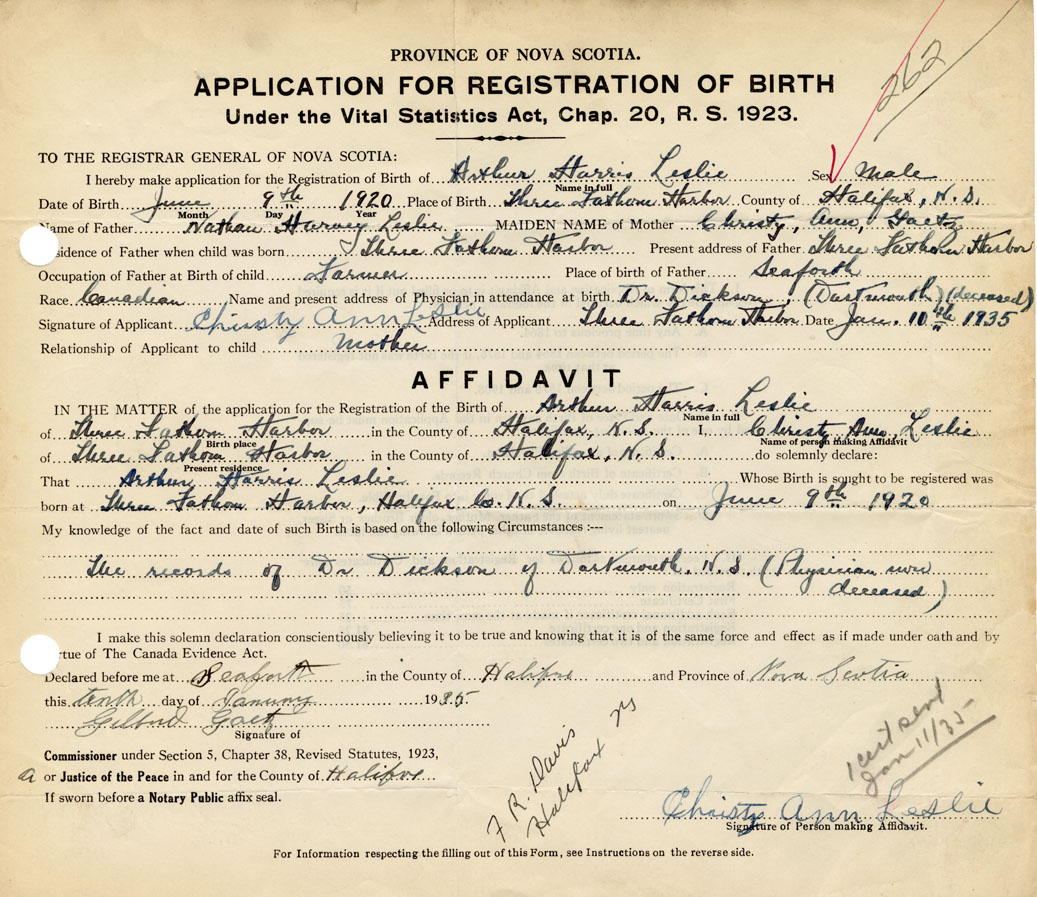 262
PROVINCE OF NOVA SCOTIA.
APPLICATION FOR REGISTRATION OF BIRTH
Under the Vital Statistics Act, Chap. 20, R. S. 1923.
TO THE REGISTRAR GENERAL OF NOVA SCOTIA:
I hereby make application for the Registration of Birth of Arthur Harris Leslie Sex Male
Name in full
Date of Birth June 9th 1920 Place of Birth Three Fathom Harbor County of Halifax, N.S.
Month Day Year
Name of Father Nathan Harvey Leslie MAIDEN NAME of Mother Christy, Ann, Gaetz
sidence of Father when child was born Three Fathom Harbor Present address of Father Three Fathom Harbor
Occupation of Father at Birth of child Farmer Place of birth of Father Seaforth
Race Canadian Name and present address of Physician in attendance at birth Dr. Dickson, (Dartmouth) (deceased)
Signature of Applicant Christy Ann Leslie Address of Applicant Three Fathom Harbor Date Jan. 10th 1935
Relationship of Applicant to child Mother
AFFIDAVIT
IN THE MATTER of the application for the Registration of the Birth of Arthur Harris Leslie
Name in full
of Three Fathom Harbor in the County of Halifax, N.S. I, Christy Ann Leslie
Birth place Name of person making Affidavit
of Three Fathom Harbor in the County of Halifax, N.S. do solemnly declare:
Present residence
That Arthur Harris Leslie Whose Birth is sought to be registered was
born at Three Fathom Harbor, Halifax Co. N.S. on June 9th 1920
My knowledge of the fact and date of such Birth is based on the following Circumstances :--
The records of Dr Dickson of Dartmouth. N.S. (Physician now
deceased)
I make this solemn declaration conscientiously believing it to be true and knowing that it is of the same force and effect as if made under oath and by
rtue of The Canada Evidence Act.
Declared before me at Seaforth in the County of Halifax and Province of Nova Scotia
this tenth day of January 1935.
Gilbord Gaetz
Signature of
Commissioner under Section 5, Chapter 38, Revised Statutes, 1923,
a or Justice of the Peace in and for the County of Halifax
If sworn before a Notary Public affix seal.
F R. Davis
Halifax
1 cert send
Jan 11/35
Christy Ann Leslie
Signature of Person making Affidavit.
For Information respecting the filling out of this Form, see Instructions on the reverse side.